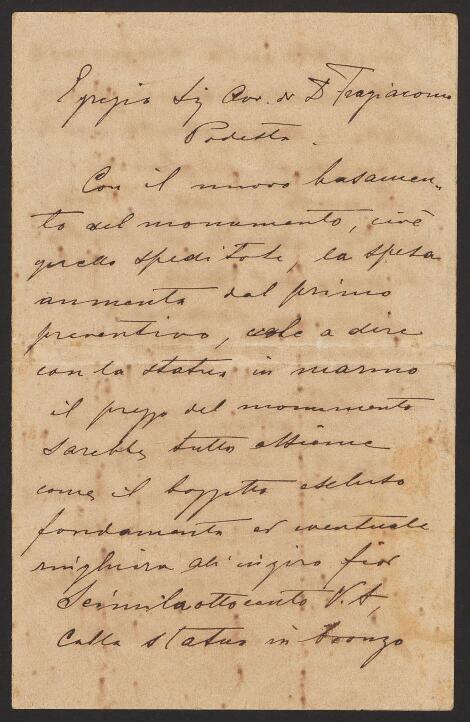 Egregio Sig Cav. dr D Fragiacomo
Podestà.
Con il nuovo basamen-
to del monumento, cioè
quello speditole, la spesa
aumenta dal primo
preventivo, vale a dire
con la statua in marmo
il prezzo del monumento
sarebbe tutto assieme
come il bozzetto escluso
fondamenta ed eventuale
ringhiera all'ingiro fior
Seimilaottocento V.A,
colla statua in bronzo